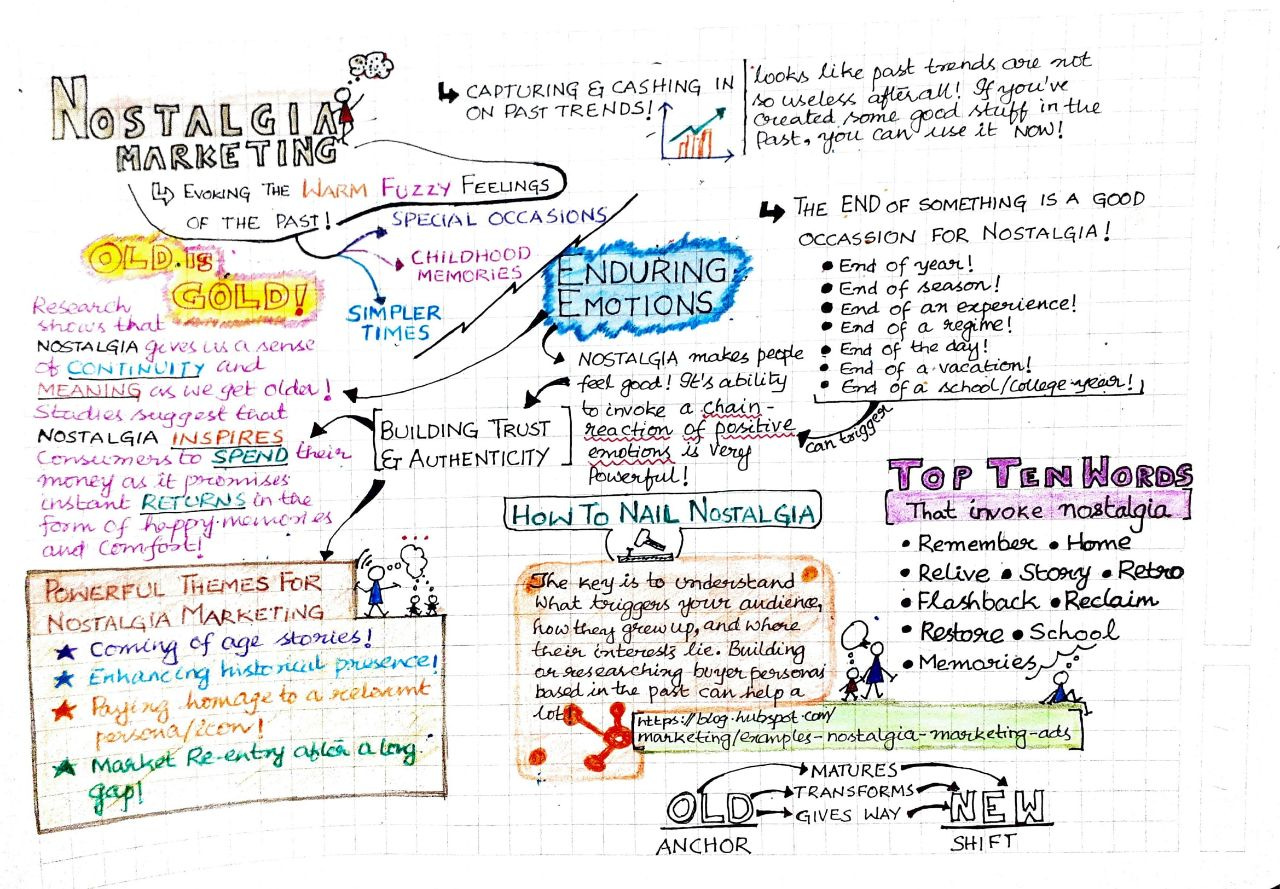 NOSTALGIA
MARKETING
EVOKING THE WARM FUZZY FEELINGS
OF THE PAST!
SPECIAL OCCASIONS
CHILDHOOD
MEMORIES
SIMPLER
TIMES
CAPTURING & CASHING IN
ON PAST TRENDS!
looks like past trends are not
so useless after all! If you've
created some good stuff in the
Past, you can use it NOW!
THE END OF SOMETHING IS A GOOD
OCCASSION FOR NOSTALGIA!
• End of year!
• End of season!
• End of an experience!
• End of a regime!
• End of the day!
• End of a vacation!
• End of a school/college year!
can trigger
OLD IS
GOLD!
Research
shows that
NOSTALGIA gives us a sense
of CONTINUITY and
MEANING as we get older!
Studies suggest that
NOSTALGIA INSPIRES
Consumers to SPEND their
money as it promises
instant RETURNS in the
form of happy memories
and comfort!
ENDURING
EMOTIONS
NOSTALGIA makes people
feel good! It's ability
to invoke a chain-
reaction of positive
emotions is very
Powerful!
BUILDING TRUST
& AUTHENTICITY
POWERFUL THEMES FOR
NOSTALGIA MARKETING
Coming of age stories!
Enhancing historical presence!
Paying homage to a relevant
persona/icon!
Market Re-entry after a long
gap!
HOW TO NAIL NOSTALGIA
The key is to understand
What triggers your audience,
how they grew up, and where
their interests lie. Building
or researching buyer personas
based in the past can help a
lot!
https://blog.hubspot.com/
marketing/examples-nostalgia-marketing-ads
TOP TEN WORDS
That invoke nostalgia
• Remember • Home
• Relive • Story • Retro
• Flashback • Reclaim
• Restore • School
• Memories
OLD
ANCHOR
MATURES
TRANSFORMS
GIVES WAY
NEW
SHIFT